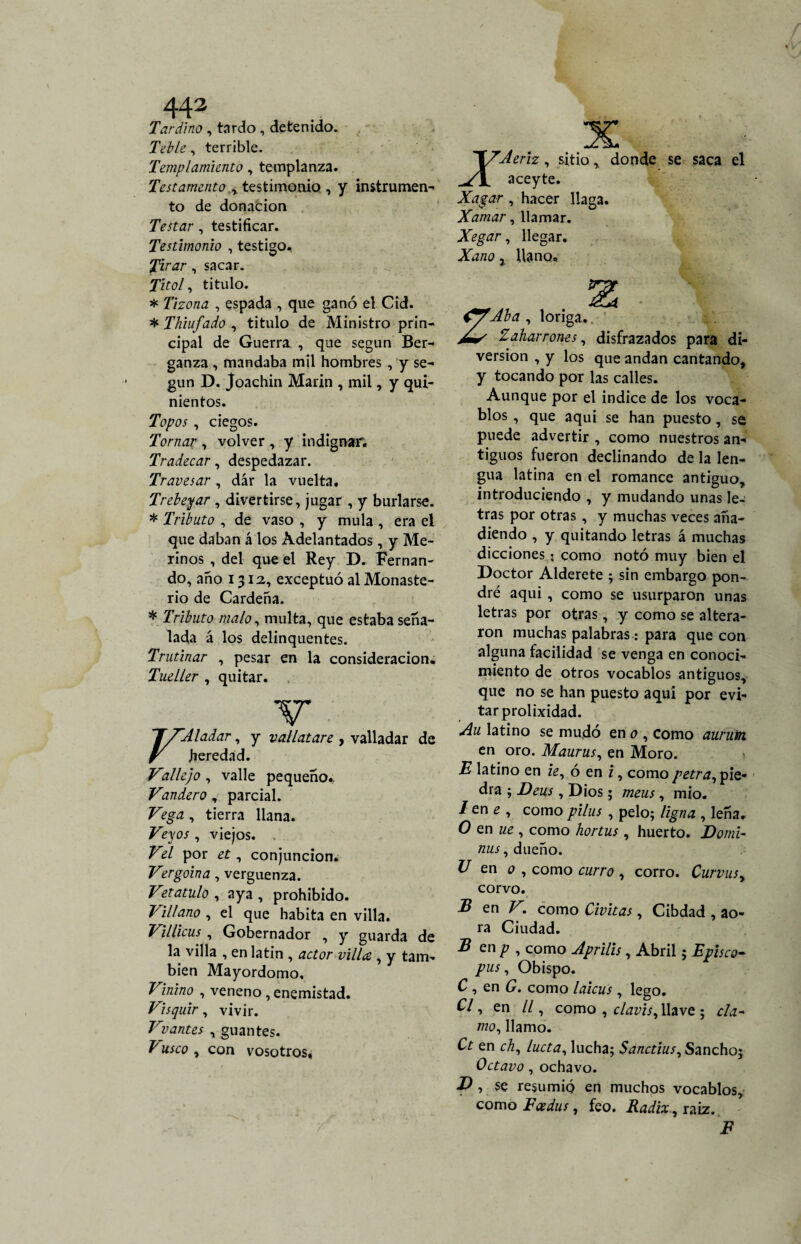 442
Tardino , tardo , detenido.
Teble , terrible.
Templamiento , templanza.
Testamento , testimonio , y instrumen-
to de donacion
Testar , testificar.
Testimonio , testigo.
Tirar , sacar.
Titol , titulo.
* Tizona , espada , que ganó el Cid.
* Thiufado , titulo de Ministro prin-
cipal de Guerra , que segun Ber-
ganza , mandaba mil hombres , y se-
gun D. Joachin Marin , mil , y qui-
nientos.
Topos , ciegos.
Tornar , volver , y indignar.
Tradecar , despedazar.
Travesar , dár la vuelta.
Trebeyar , divertirse, jugar , y burlarse.
* Tributo , de vaso , y mula , era el
que daban á los Adelantados , y Me-
rinos , del que el Rey D. Fernan-
do, año 1312, exceptuó al Monaste-
rio de Cardeña.
* Tributo malo , multa, que estaba seña-
lada á los delinquentes.
Trutinar , pesar en la consideracion.
Tueller , quitar.
V
VAladar , y vallatare , valladar de
heredad.
Vallejo , valle pequeño.
Vandero , parcial.
Vega , tierra llana.
Veyos , viejos.
Vel por et , conjuncion.
Vergoina , verguenza.
Vetatulo , aya , prohibido.
Villano , el que habita en villa.
Villicus , Gobernador , y guarda de
la villa , en latin , actor villæ , y tam-
bien Mayordomo.
Vinino , veneno , enemistad.
Visquir , vivir.
Vvantes , guantes.
Vusco , con vosotros.
X
XAeriz , sitio , donde se saca el
aceyte.
Xagar , hacer llaga.
Xamar , llamar.
Xegar , llegar.
Xano , llano.
Z
ZAba , loriga.
Zaharrones , disfrazados para di-
version , y los que andan cantando,
y tocando por las calles.
Aunque por el indice de los voca-
blos , que aqui se han puesto , se
puede advertir , como nuestros an-
tiguos fueron declinando de la len-
gua latina en el romance antiguo,
introduciendo , y mudando unas le-
tras por otras , y muchas veces aña-
diendo , y quitando letras á muchas
dicciones ; como notó muy bien el
Doctor Alderete ; sin embargo pon-
dré aqui , como se usurparon unas
letras por otras , y como se altera-
ron muchas palabras : para que con
alguna facilidad se venga en conoci-
miento de otros vocablos antiguos,
que no se han puesto aqui por evi-
tar prolixidad.
Au latino se mudó en o , como aurum
en oro. Maurus, en Moro.
E latino en ie, ó en i , como petra, pie-
dra ; Deus , Dios ; meus , mio.
I en e , como pilus , pelo; ligna , leña.
O en ue , como hortus , huerto. Domi-
nus , dueño.
U en o , como curro , corro. Curvus,
corvo.
B en V. como Civitas , Cibdad , ao-
ra Ciudad.
B en p , como Aprilis , Abril ; Episco-
pus , Obispo.
C , en G. como laicus , lego.
Cl , en ll , como , clavis, llave ; cla-
mo, llamo.
Ct en ch, lucta, lucha; Sanctius, Sancho;
Octavo , ochavo.
D , se resumió en muchos vocablos,
como Fœdus , feo. Radix , raiz.
F